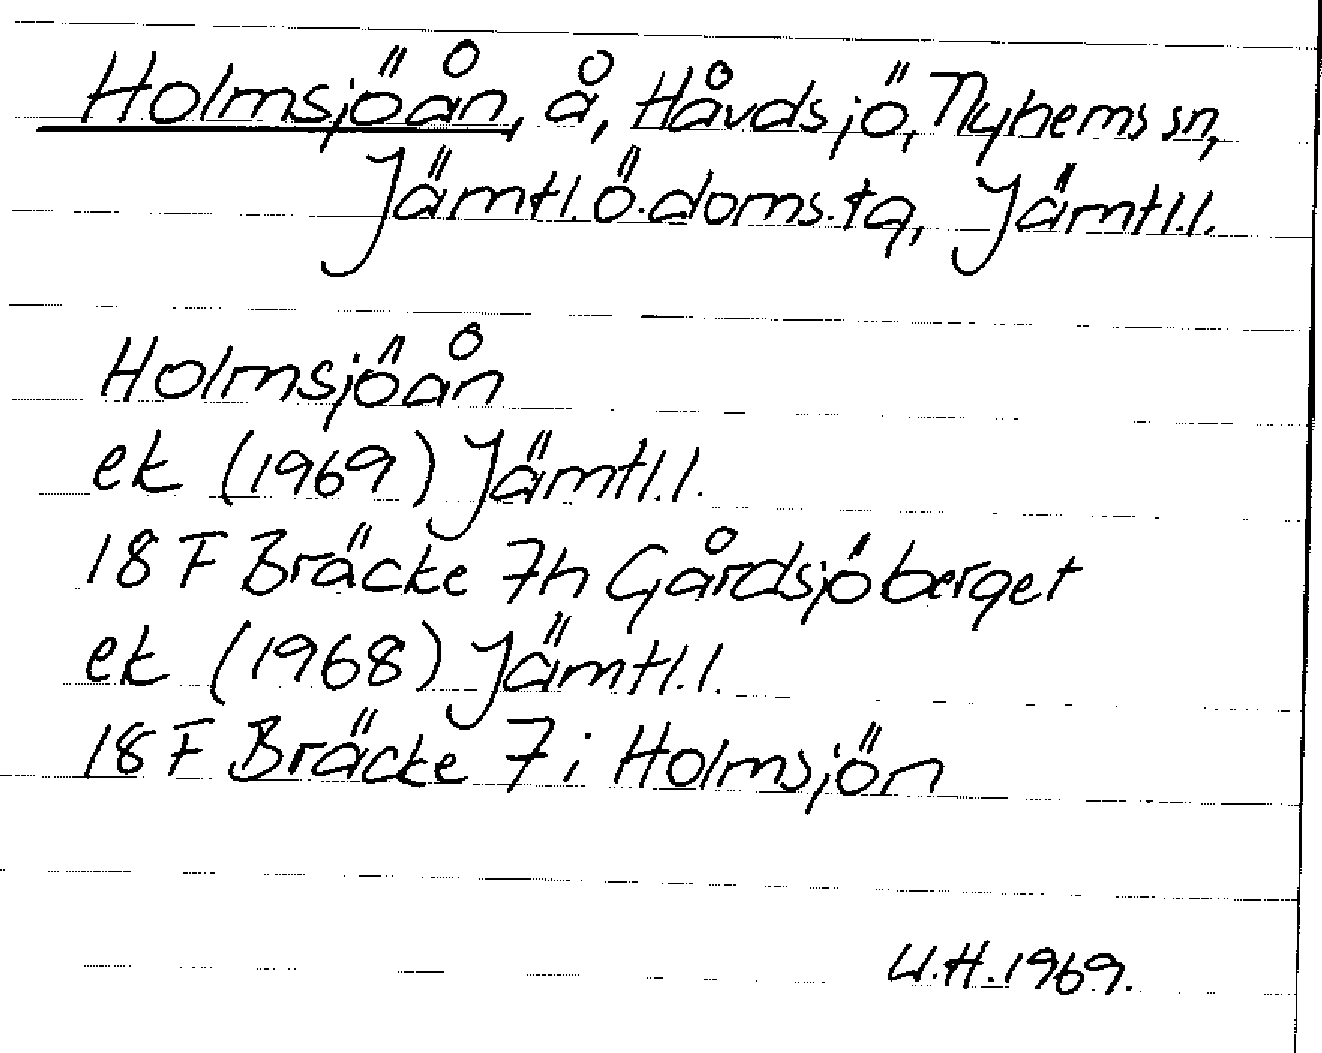 Holmsjöån, å, Håvdsjö, Nyhems sn,
Jämtl. Ö. doms. tg, Jämtl.l.
Holmsjöån
ek (1969) Jämtl.l.
18 F Bräcke 7h Gårdsjöberget
ek (1968) Jämtl.l.
18 F Bräcke 7i Holmsjön
U.H. 1969.